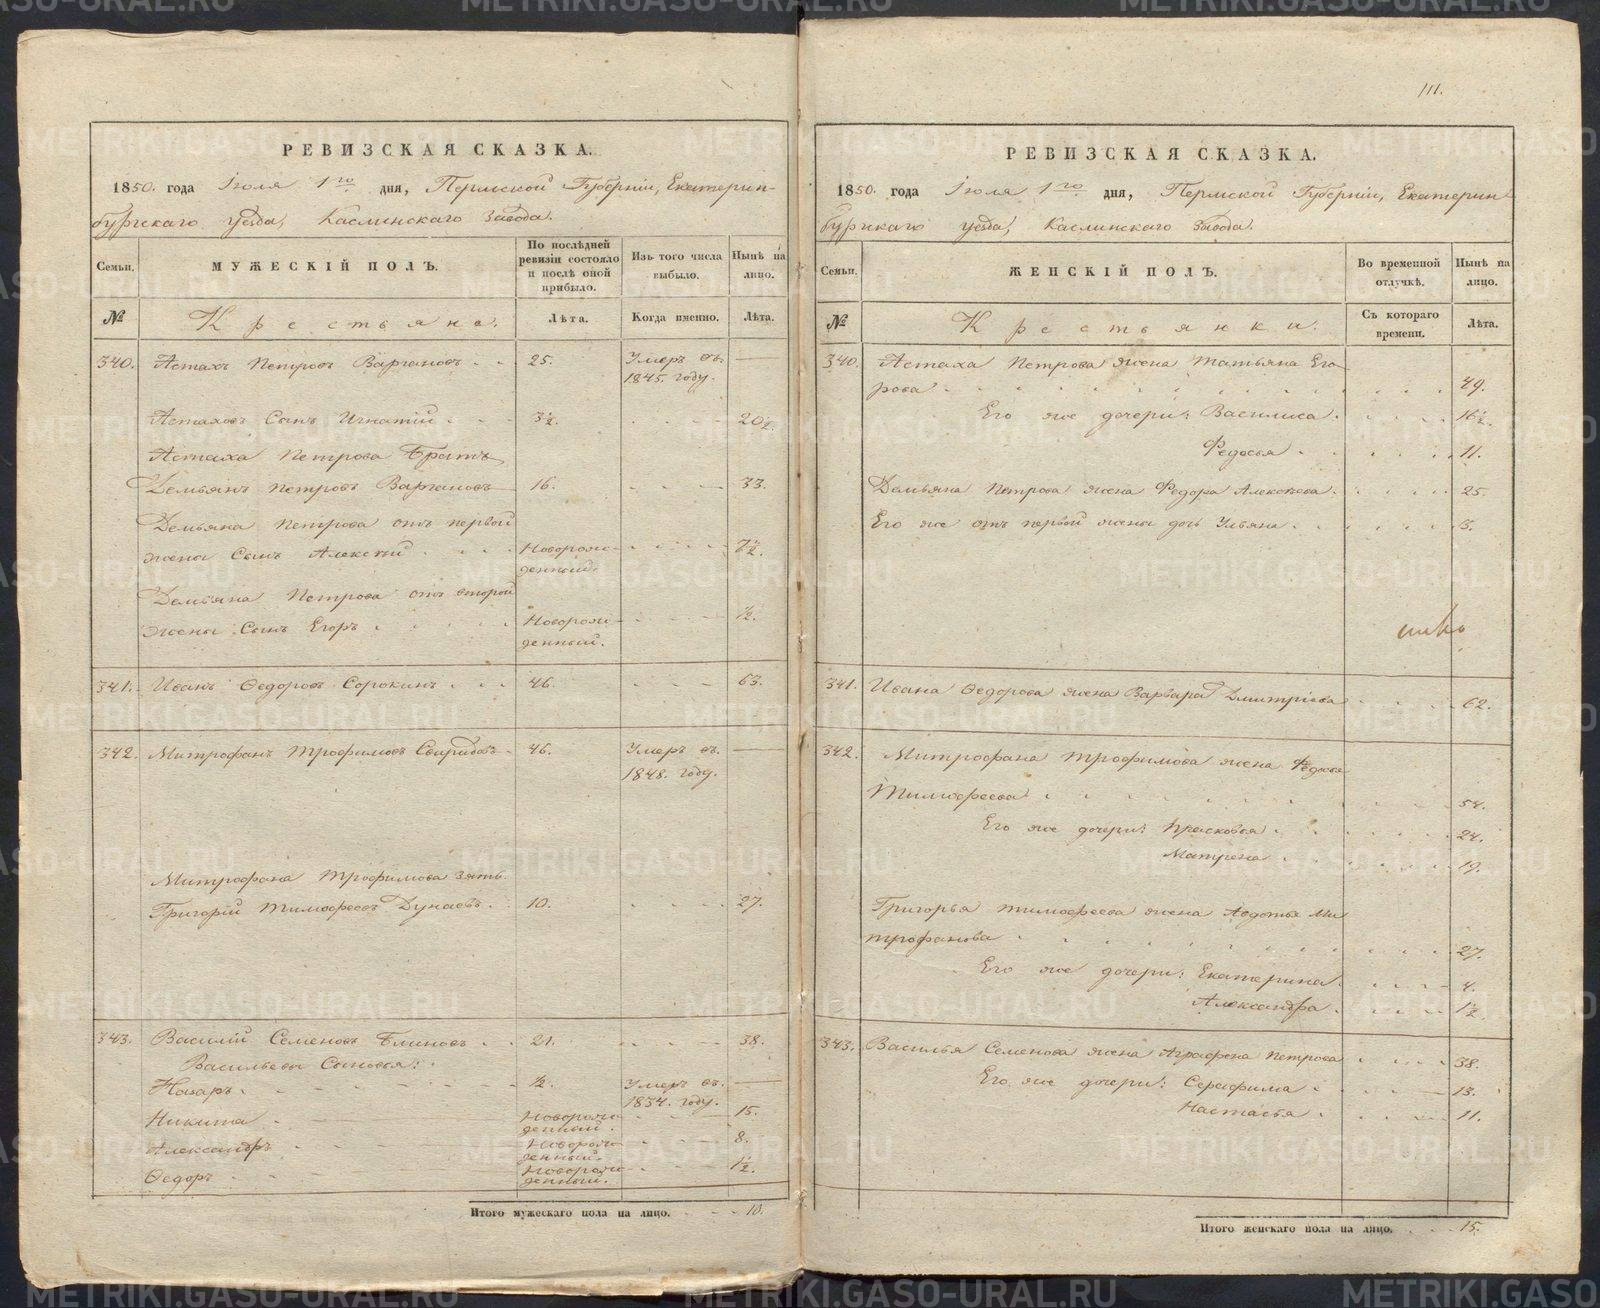 111.
РЕВИЗСКАЯ СКАЗКА.
1850. года Іюля 1го дня, Пермской Губерніи, Екатерин-
бургскаго уезда, Каслинскаго завода.
Семьи.
МУЖЕСКІЙ ПОЛЪ.
По послѣдней ревизіи состояло и послѣ оной прибыло.
Изъ того числа выбыло.
Нынѣ на лицо.
№
Крестьяне.
Лѣта.
Когда именно.
Лѣта.
340. Астахъ Петровъ Варановъ 25. Умеръ въ
1845. году.
Астаховъ Сынъ Игнатій 3½. 20½.
Астаха Петрова Братъ
Демьянъ Петровъ 16. 33.
Демьяна Петрова отъ первой
жены Сынъ Алексѣй Новорож- 7½.
денный.
Демьяна Петрова отъ второй
жены Сынъ Егоръ Новорож- ½.
денный.
341. Иванъ Ѳедоровъ Сорокинъ 46. 63.
342. Митрофанъ Трофимовъ Свиридовъ 46. Умеръ въ
1848. году.
Митрофана Трофимова зять
Григорій Тимофеевъ Дунаевъ 10. 27.
343. Василій Семеновъ Блиновъ 21. 38.
Васильевы Сыновья:
Назаръ ½. Умеръ въ
1834. году.
Никита Новорож- 15.
денный.
Александръ Новорож- 8.
денный.
Ѳедоръ Новорож- 1½.
денный.
Итого мужескаго пола на лицо. 10.
РЕВИЗСКАЯ СКАЗКА.
1850. года Іюля 1го дня, Пермской Губерніи, Екатерин-
бургскаго уезда, Каслинскаго завода.
Семьи.
ЖЕНСКІЙ ПОЛЪ.
Во временной отлучкѣ.
Нынѣ на лицо.
№
Крестьянки.
Съ котораго времени.
Лѣта.
340. Астаха Петрова жена Татьяна Его-
рова 49.
Его же дочери: Василиса 16½.
Федосья 11.
Демьяна Петрова жена Федора Алексѣева 25.
Его же отъ первой жены дочь Ульяна 3.
341. Ивана Ѳедорова жена Варвара Дмитріева 62.
342. Митрофана Трофимова жена Федосья
Тимофеева 54.
Его же дочери: Прасковья 24.
Матрена 19.
Григорья Тимофеева жена Авдотья Ми
трофанова 27.
Его же дочери: Екатерина 4.
Александра 1½.
343. Василья Семенова жена Аграфена Петрова 38.
Его же дочери: Серафима 13.
Настасья 11.
Итого женскаго пола на лицо. 15.
METRIKI.GASO-URAL.RU